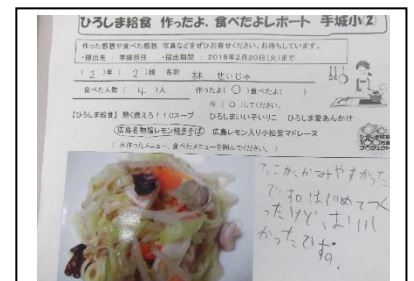 ひろしま給食 作ったよ、食べたよレポート 手城小②
作った感想や食べた感想、写真などをぜひお寄せください。お待ちしています。
・提出先：学級担任 ・提出期間 2018年2月20日(火)まで
(2)年(2)組 名前 林 せいじゅ
食べた人数(4)人 作ったよ(○)食べたよ( )
※(○)してください。
【ひろしま給食】熱く燃えろ!!○○スープ ひろしまいい子いりこ ひろしま愛あんかけ
広島名物塩レモン焼きそば 広島レモン入り小松菜マドレーヌ
(※作ったメニュー、食べたメニューを囲んでください。)
たこがかみやすかった
です。はじめてつく
ったけど、おいし
かったです。